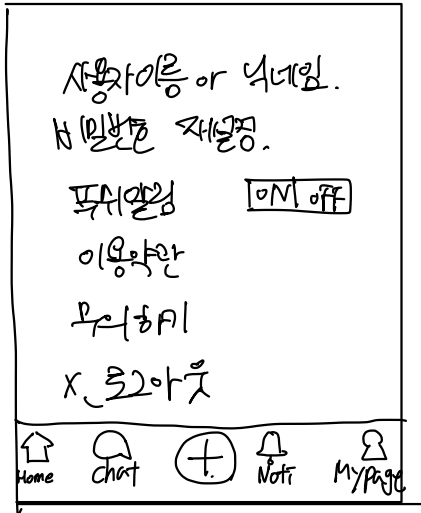 사용자이름 or 닉네임.
비밀번호 재설정.
푸쉬알림 ON off
이용약관
문의하기
X_로그아웃
Home Chat + Noti Mypage